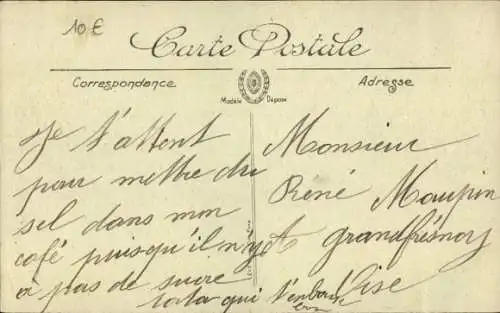 10 €
Carte Postale
Correspondance
Adresse
Modèle Déposé
Je t'attent
pour mettre du
sel dans mon
café puisqu'il n'y
a pas de sucre
tata qui t'embrasse
Monsieur
René Maupin
à grandfrésnoy
Oise